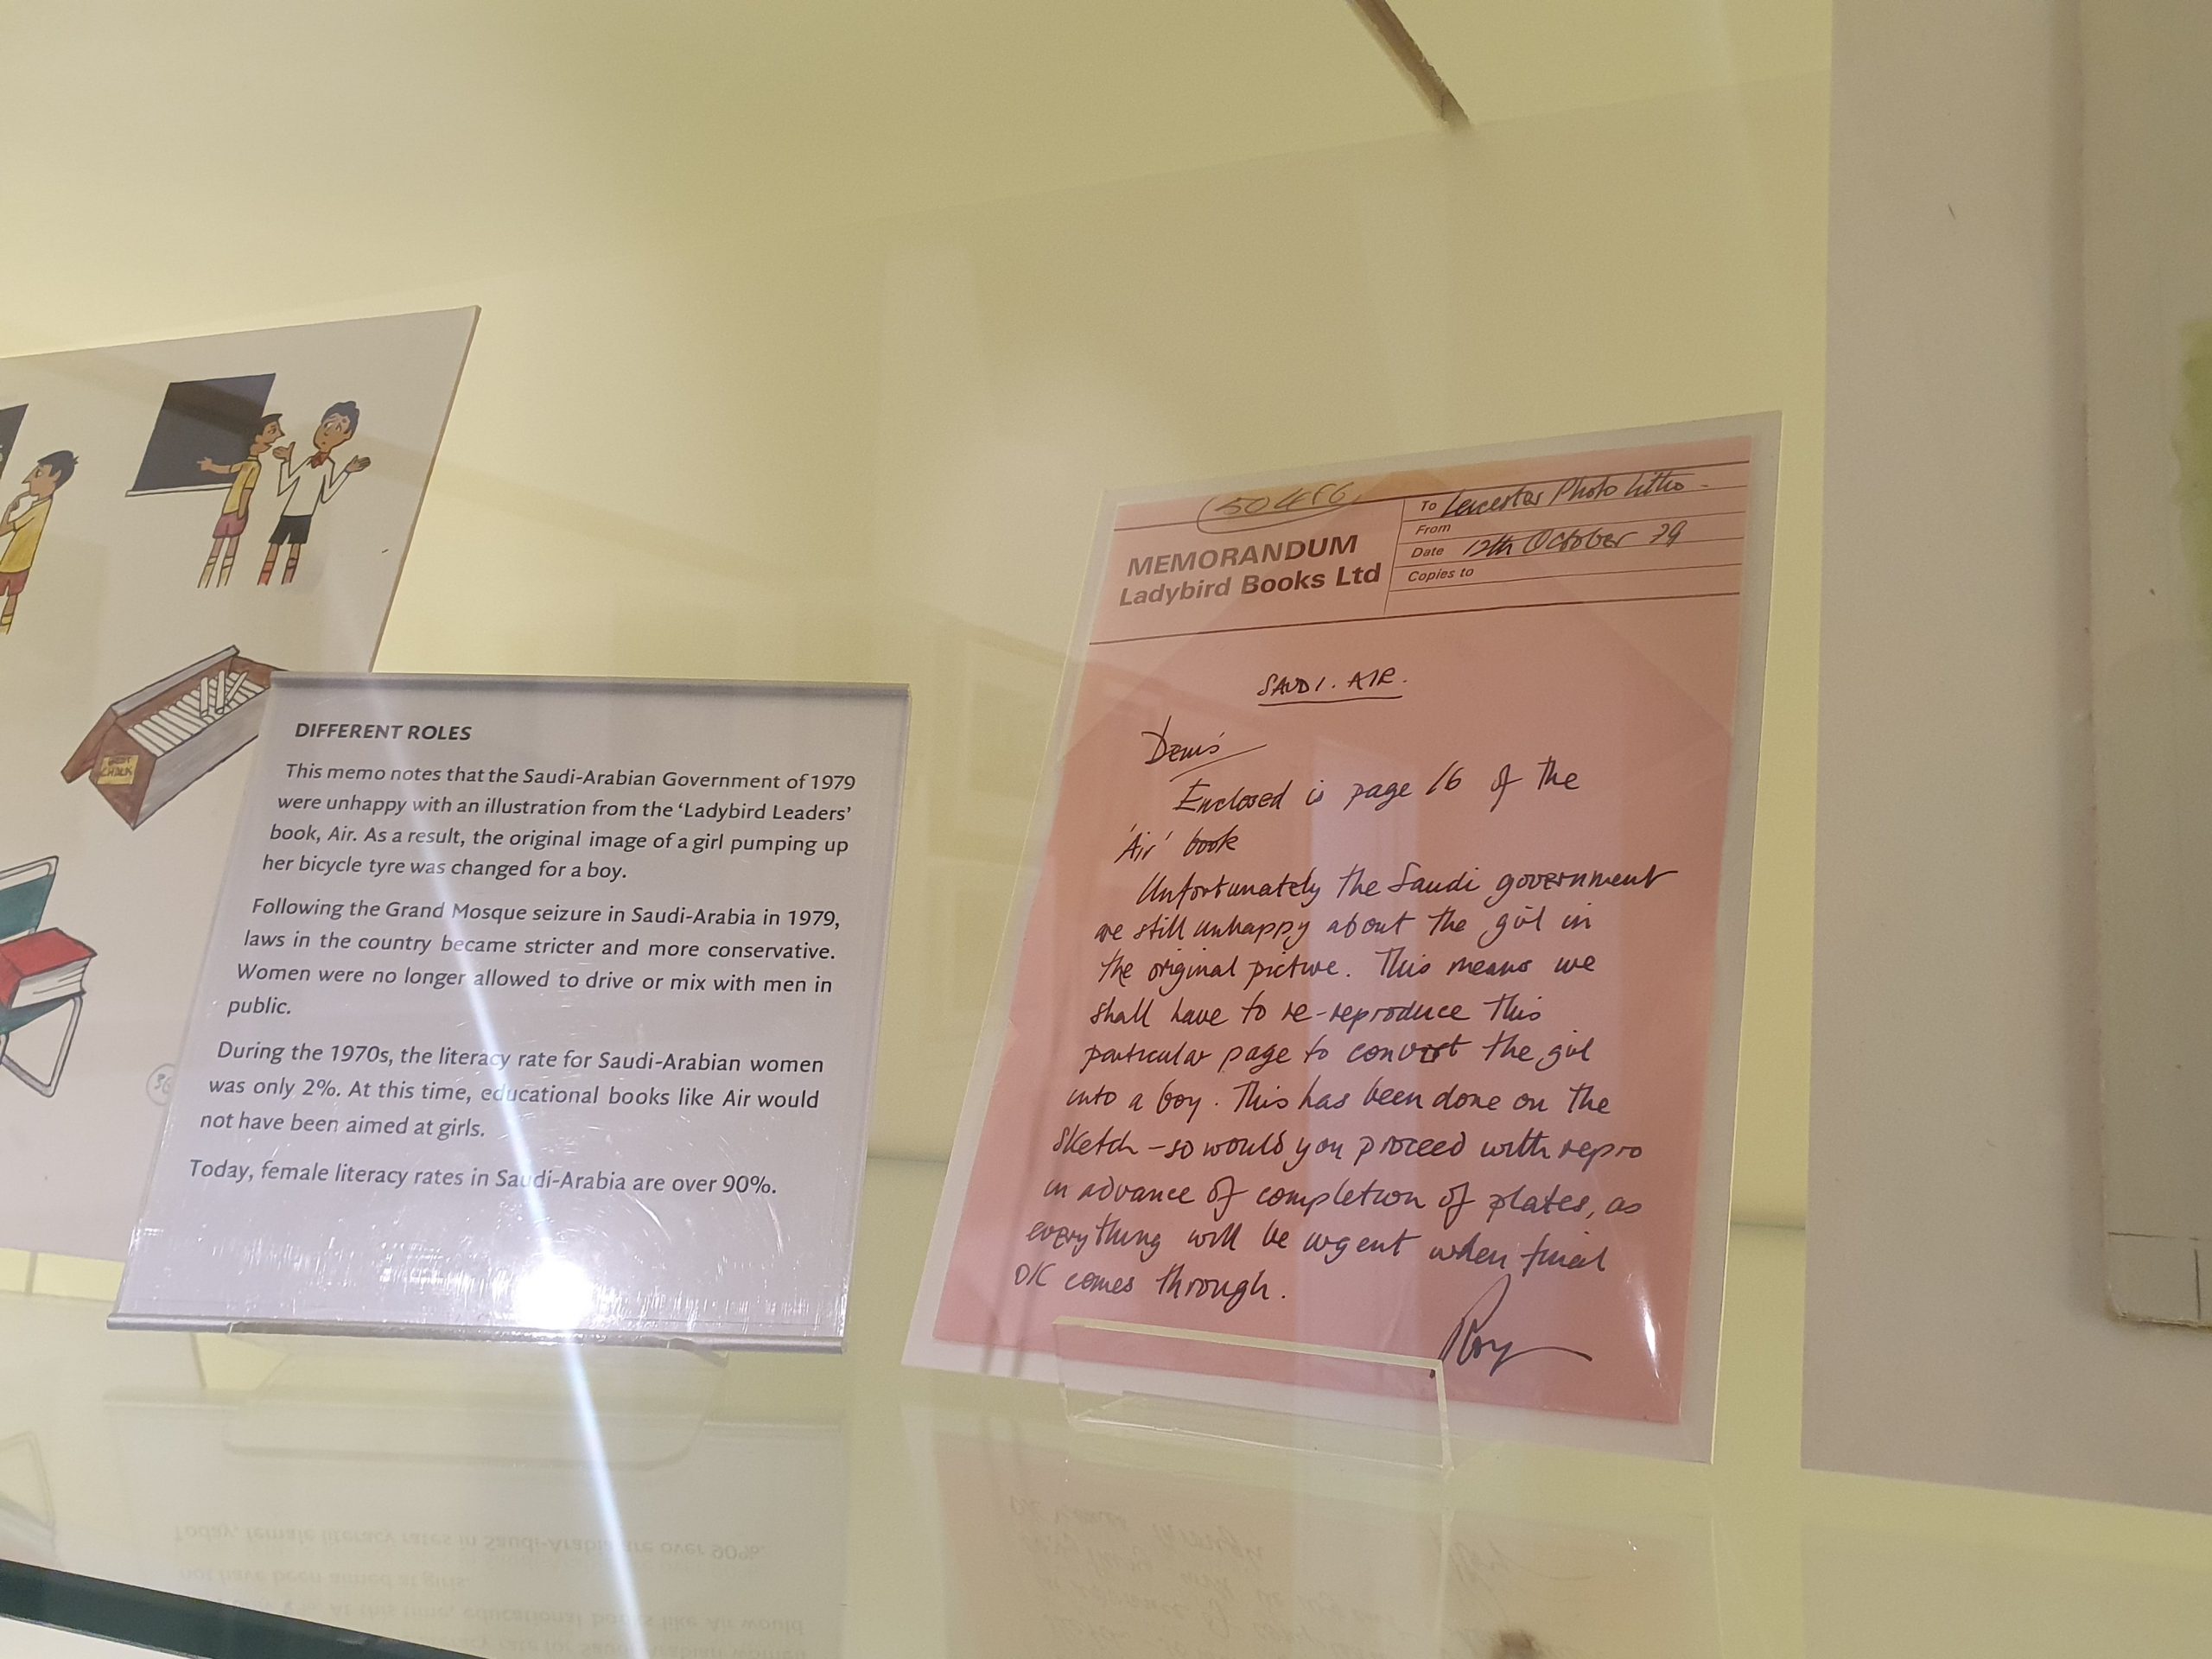 DIFFERENT ROLES
This memo notes that the Saudi-Arabian Government of 1979
were unhappy with an illustration from the ‘Ladybird Leaders’
book, Air. As a result, the original image of a girl pumping up
her bicycle tyre was changed for a boy.
Following the Grand Mosque seizure in Saudi-Arabia in 1979,
laws in the country became stricter and more conservative.
Women were no longer allowed to drive or mix with men in
public.
During the 1970s, the literacy rate for Saudi-Arabian women
was only 2%. At this time, educational books like Air would
not have been aimed at girls.
Today, female literacy rates in Saudi-Arabia are over 90%.
CHALK
MEMORANDUM
Ladybird Books Ltd
To Leicester Photo Litho -
From
Date 12th October 79
Copies to
SAUDI. AIR.
Denis
Enclosed is page 16 of the
'Air' book
Unfortunately the Saudi government
are still unhappy about the girl in
the original picture. This means we
shall have to re-reproduce this
particular page to convert the girl
into a boy. This has been done on the
sketch - so would you proceed with repro
in advance of completion of plates, as
everything will be urgent when final
O/K comes through.
Roy